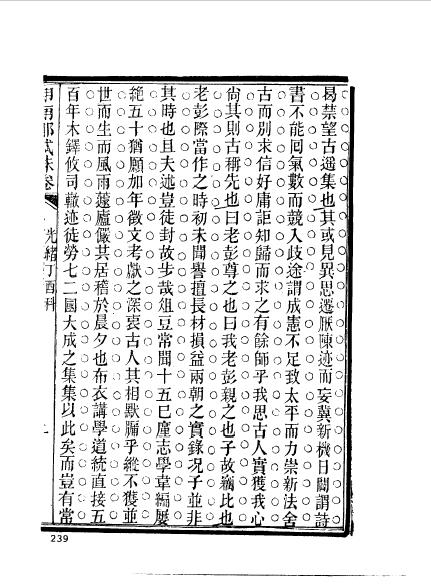 曷禁望古遥集也其或見異思遷厭陳迹而妄冀新機日闢謂詩
書不能囘氣數而競入歧途謂成憲不足致太平而力崇新法舍
古而別求信好庸詎知歸而求之有餘師乎我思古人實獲我心
尙其則古稱先也曰老彭尊之也曰我老彭親之也子故竊比也
老彭際當作之時初未聞譽擅長材損益兩朝之實錄况子並非
其時也且夫述豈徒封故步哉俎豆常聞十五已廑志學韋編屢
絕五十猶願加年徵文考獻之深衷古人其相默牖乎縱不獲並
世而生而風雨蘧廬儼其居稽於晨夕也布衣講學道統直接五
百年木鐸攸司轍迹徒勞七二國大成之集集以此矣而豈有常
光緒丁酉科
239